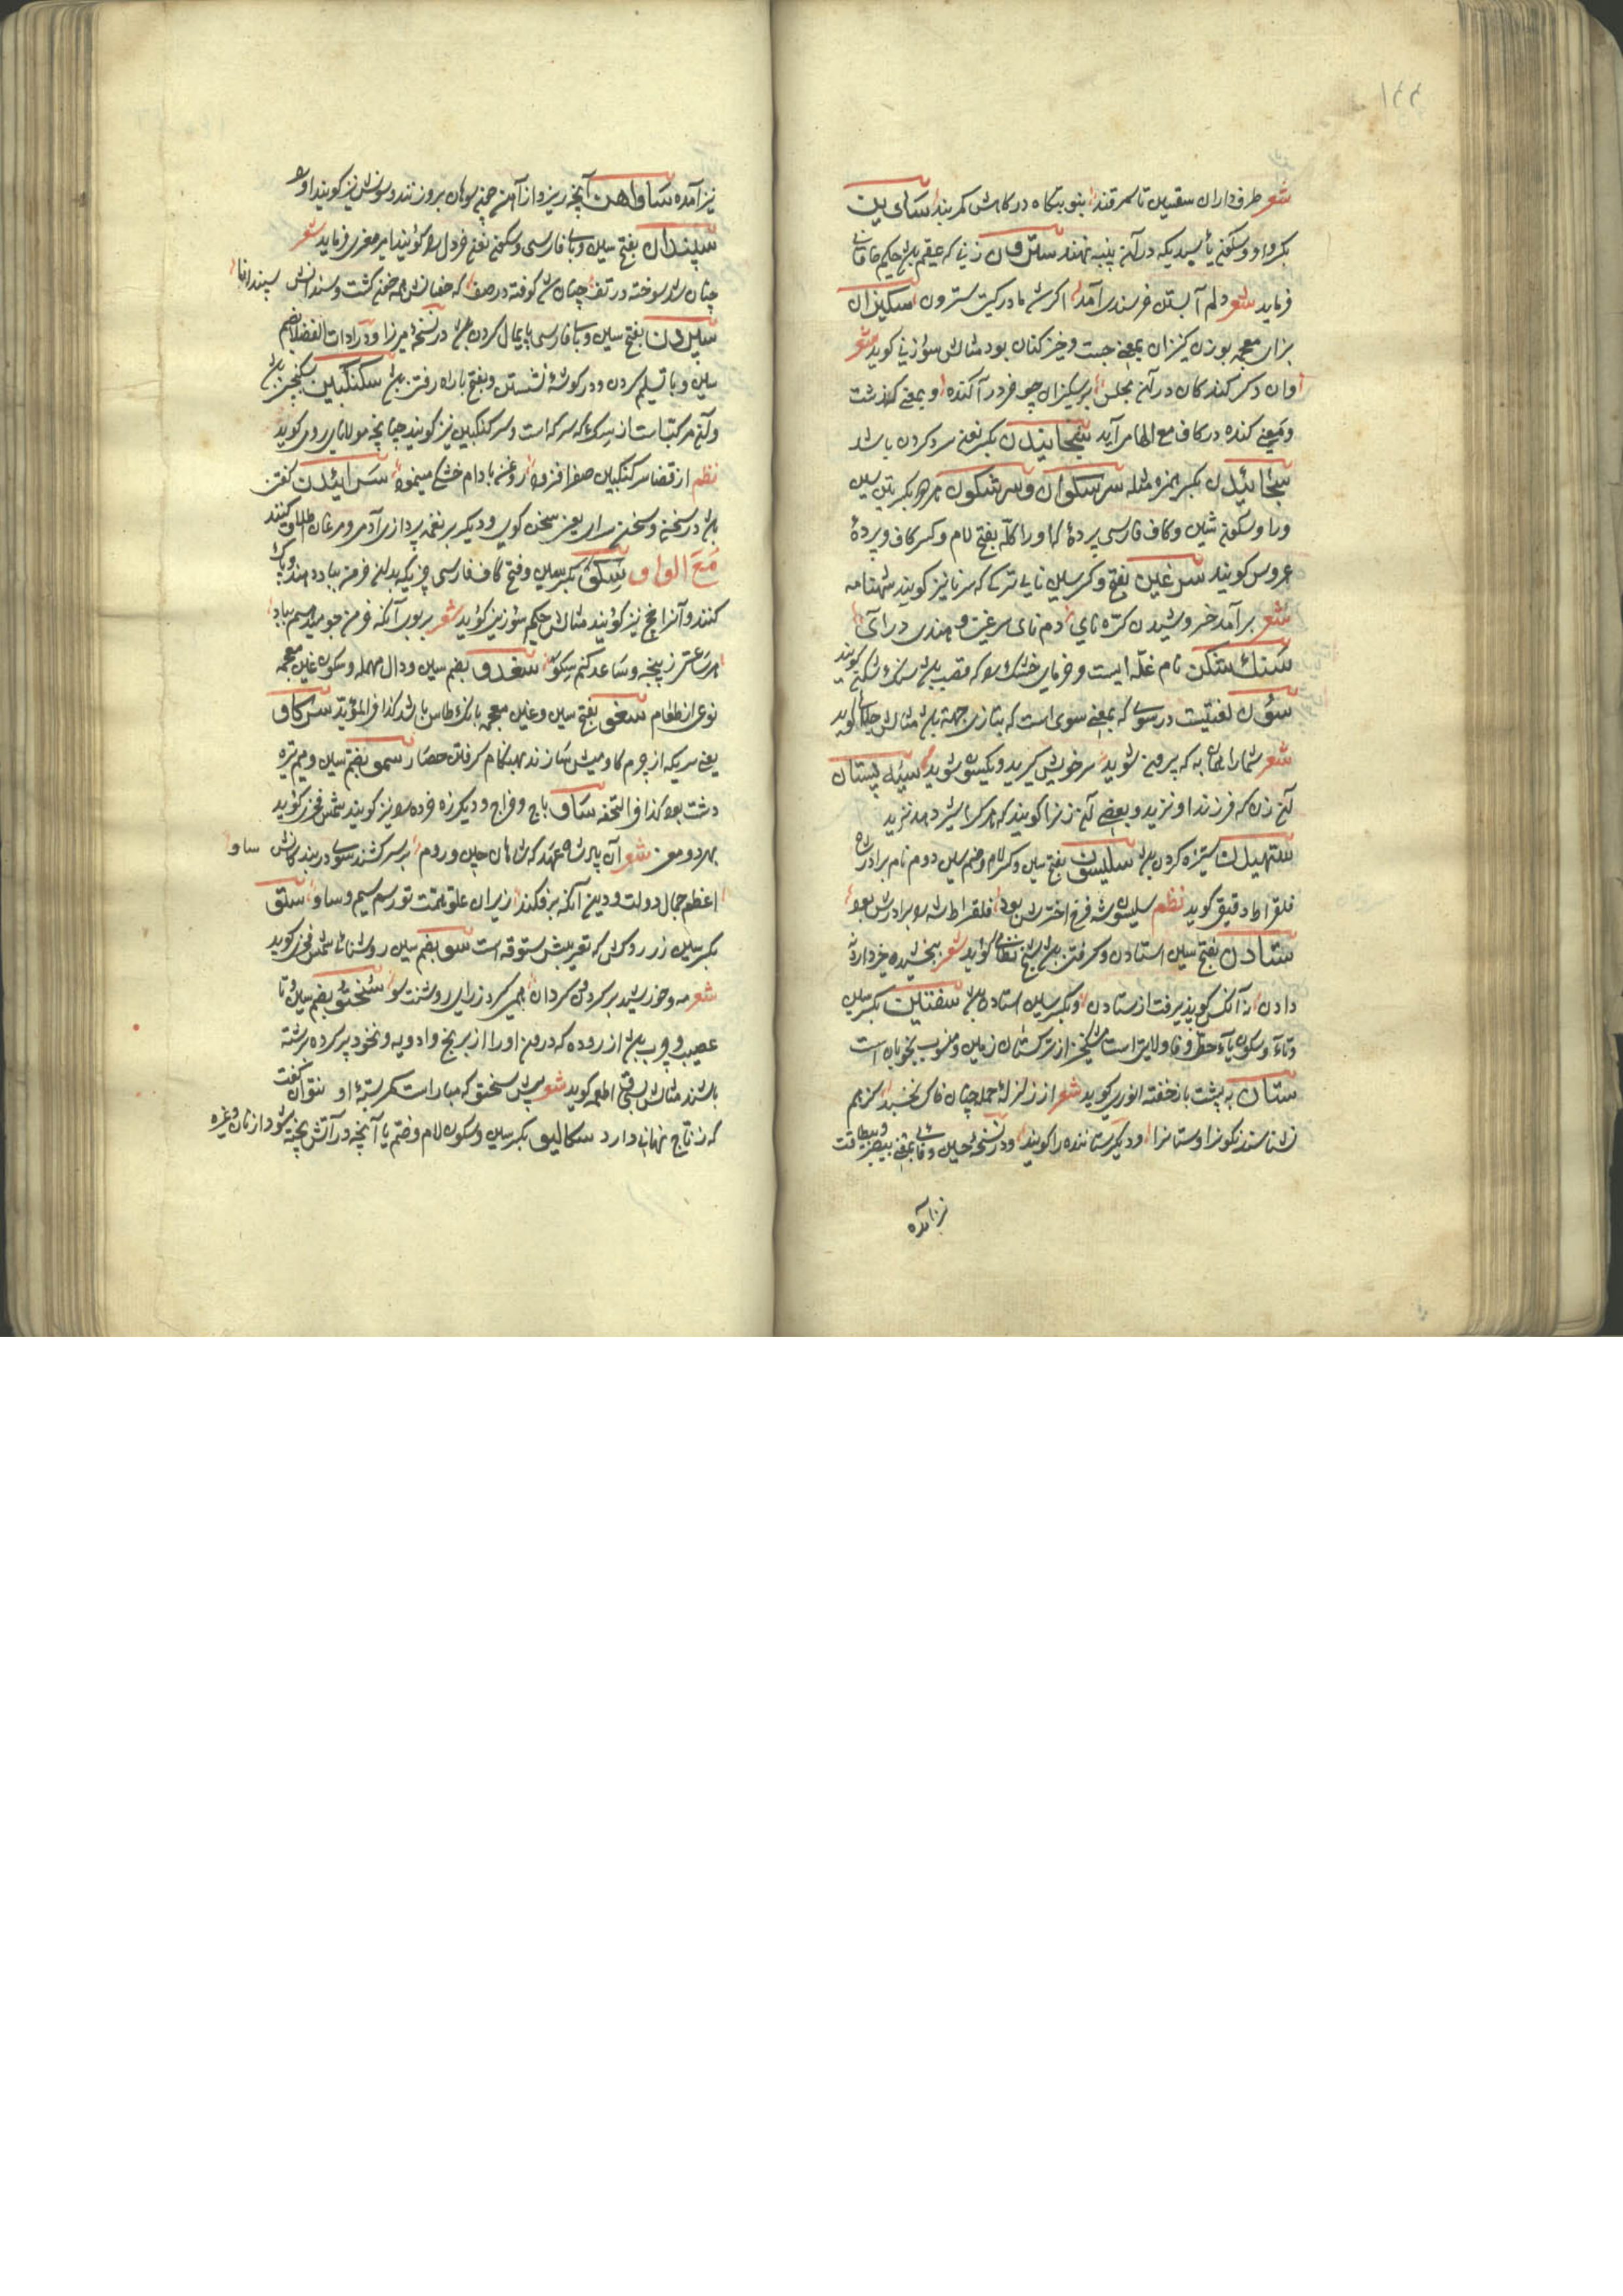 ۱۴۴
شعر طرف داران سقسین تا سمرقند بنوبتگاه درگاهش کمربند ساوین
بکر واو وسکون یا سبدیکه در آن پنبه نهند سترون زنی که عقیم باشد حکیم خاقانی
فرماید شعر دلم آبستن خرسندی آمد اگر شد مادر گیتی سترون سکیزان
بزای معجمه بوزن کنیزان بمعنی جست وخیز کنان بود مثالش سوزنی گوید شعر
وان دگر کندگان در آن مجلس بر سکیزان چو خر در آکنده و بمعنی گذشت
وبمعنی کنده در کاف مع الها می آید سنجانیدن بکسر یعنی سرد کردن باشد
سنجائیدن بکسر همزه مثله سرسکوان و سرشکون هر دو بکسرتین سین
ورا وسکون شین وکاف فارسی پردهٔ که او را کله بفتح لام وکسر کاف وپردهٔ
عروس گویند سرغین بفتح وکسر سین نای ترکی که سرنا نیز گویند شهنامه
شعر برآمد خروشیدن کره نای دم نای سرغین و هندی درای
سنک شکن نام غله ایست وخرمای خشک شده که قصب باشد سنگ شکن گویند
سؤن لغتیست در سوی که بمعنی سوی است که بتازی جهة باشد مثالش گوید
شعر شما را همان به که بیرون شوید سر خویش گیرید و یکسون شوید سیه پستان
آن زن که فرزند او نزید وبعضی آن زنرا گویند که هر کرا شیر دهد نزید
ستهیدن ستیزه کردن باشد سلیسون بفتح سین وکسر لام وضم سین دوم نام برادر شاه
فلقراط دقیقی گوید نظم سلیسون شه فرخ اخترش بود فلقراط شه را برادرش بود
ستادن بفتح سین استادن وگرفتن باشد شیخ نظامی گوید شعر بخشیده خرداره
دادن نه آنکس کو پذیرفت از ستادن وبکسر سین استادن باشد سفتین بکسر سین
وتاء وسکون یاء حطی وفا ولایتی است مشکخیز از ترکستان زمین ومنسوب بخوبان است
ستان به پشت باز خفته انوری گوید شعر از زلزلهٔ حمله چنان خاک بخسبد کز هم
نشناسند نگونرا و ستانرا و دیگر ستاننده را گویند ودر نسخهٔ حسین وفایی بمعنی بیصبر وبیطاقت
نیز آمده
نیز آمده ساوآهن آنچه ریزد از آهن چون سوهان بروزنند وسونش نیز گویند او را
سپندان بفتح سین وبای فارسی وسکون نون خردل را گویند امیر معزی فرماید شعر
چنان شد سوخته در تف چنان شد کوفته در صف که خفتانش همه خون گشت وسندانش سپندانا
سپردن بفتح سین وبا فارسی پایمال کردن باشد در نسخهٔ میرزا ودر ادات الفضلا بضم
سین وبا تسلیم کردن ودر گوشهٔ نشستن وبفتح با راه رفتن باشد سکنکبین سکنجبین باشد
وآن مرکبات از سرکه که سرکه است وسرکنکبین نیز گویند چنانچه مولانای رومی گوید
نظم از قضا سرکنکبین صفرا فزود روغن بادام خشکی مینمود سرائیدن گفتن
باشد در سخن وسخن سرای یعنی سخن گوی ودیگر بر نغمه پردازی آدمی ومرغان اطلاق کنند
مع الواو سکو بکسر سین وفتح کاف فارسی چیزیکه بدان خرمن بباد دهند وپاک
کنند وآنرا هج نیز گویند مثالش حکیم سوزنی گوید شعر بر بوی آنکه خرمن جو میدهم بباد
هر ساعتی ز پنجه وساعد کنم سکو سغدو بضم سین ودال مهمله وسکون غین معجمه
نوعی از طعام سغو بفتح سین وغین معجمه بانک طاس باشد کذا فی المؤید سرکاو
یعنی سریکه از چرم گاومیش سازند بهنگام گرفتن حصار سمو بفتح سین ومیم تره
دشت بود کذا فی التحفه ساو باج وخراج ودیگر زر خرده را نیز گویند شمس فخری گوید
بهردو معنی شعر آن پادشاه عهد که شاهان چین وروم بر سر کشند سوی در بندگانش ساو
اعظم جمال دولت ودین آنکه برفکند از ایران علو همت تو رسم سیم وساو ستو
بکسر سین زر روکش که تعریبش ستوقه است سو بضم سین روشنائی شمس فخری گوید
شعر مه وخورشید بر گردون گردان همی گیرد ز رای روشنت سو سختو بضم سین وتا
عصیب وچرب باشد از روده که درون او را از برنج وادویه ونخود پر کرده سرشته
باشند مثالش بسحق اطعمه گوید شعر پیش سختو که مبارات کمر بستهٔ او نتوان گفت
که ز تتاج نهانی دارد سکالیو بکسر سین وسکون لام وضم یا آنچه در آتش پخته شود از نان وغیره